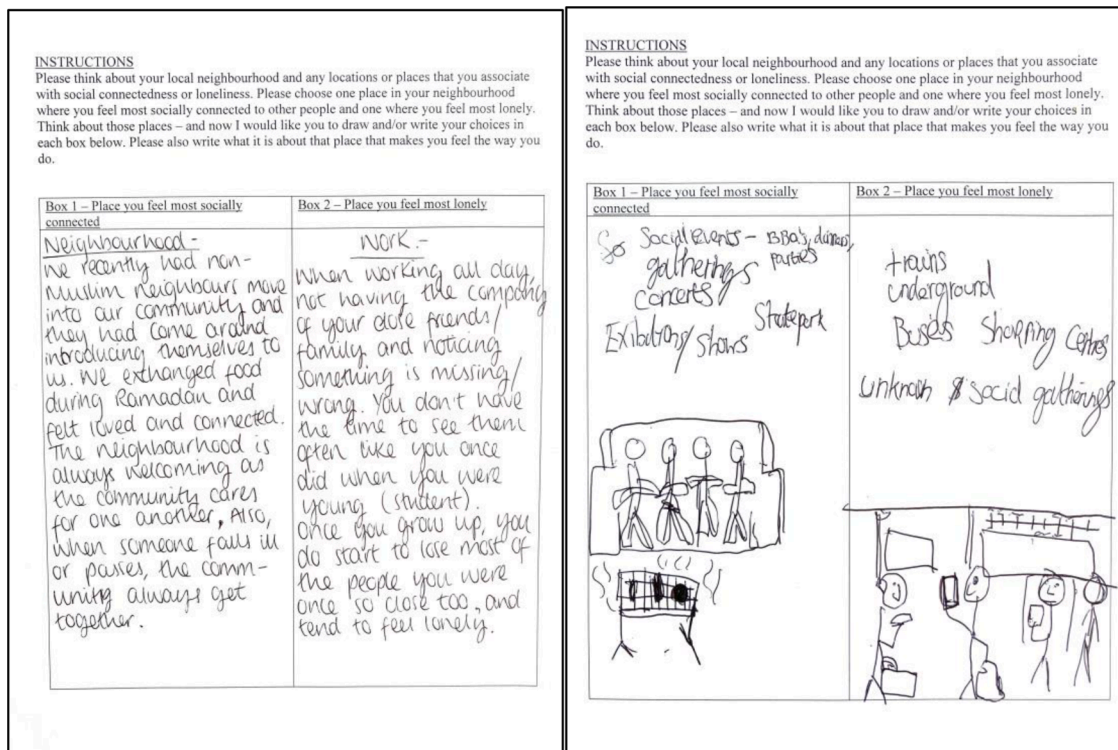 INSTRUCTIONS
Please think about your local neighbourhood and any locations or places that you associate
with social connectedness or loneliness. Please choose one place in your neighbourhood
where you feel most socially connected to other people and one where you feel most lonely.
Think about those places – and now I would like you to draw and/or write your choices in
each box below. Please also write what it is about that place that makes you feel the way you
do.
Box 1 – Place you feel most socially
connected
Neighbourhood -
We recently had non-
Muslim neighbours move
into our community and
they had come around
introducing themselves to
us. We exhanged food
during Ramadan and
felt loved and connected.
The neighbourhood is
always welcoming as
the community cares
for one another, Also,
when someone falls ill
or passes, the comm-
unity always get
together.
Box 2 – Place you feel most lonely
Work.-
When working all day,
not having the company
of your close friends/
family and noticing
something is missing/
wrong. You don't have
the time to see them
often like you once
did when you were
young (student).
Once you grow up, you
do start to lose most of
the people you were
once so close too, and
tend to feel lonely.
INSTRUCTIONS
Please think about your local neighbourhood and any locations or places that you associate
with social connectedness or loneliness. Please choose one place in your neighbourhood
where you feel most socially connected to other people and one where you feel most lonely.
Think about those places – and now I would like you to draw and/or write your choices in
each box below. Please also write what it is about that place that makes you feel the way you
do.
Box 1 – Place you feel most socially
connected
Social events - BBQ's, dinners,
parties
gatherings
concerts
Skatepark
Exibitions/shows
Box 2 – Place you feel most lonely
trains
underground
Buses Shopping Centres
unknown social gatherings